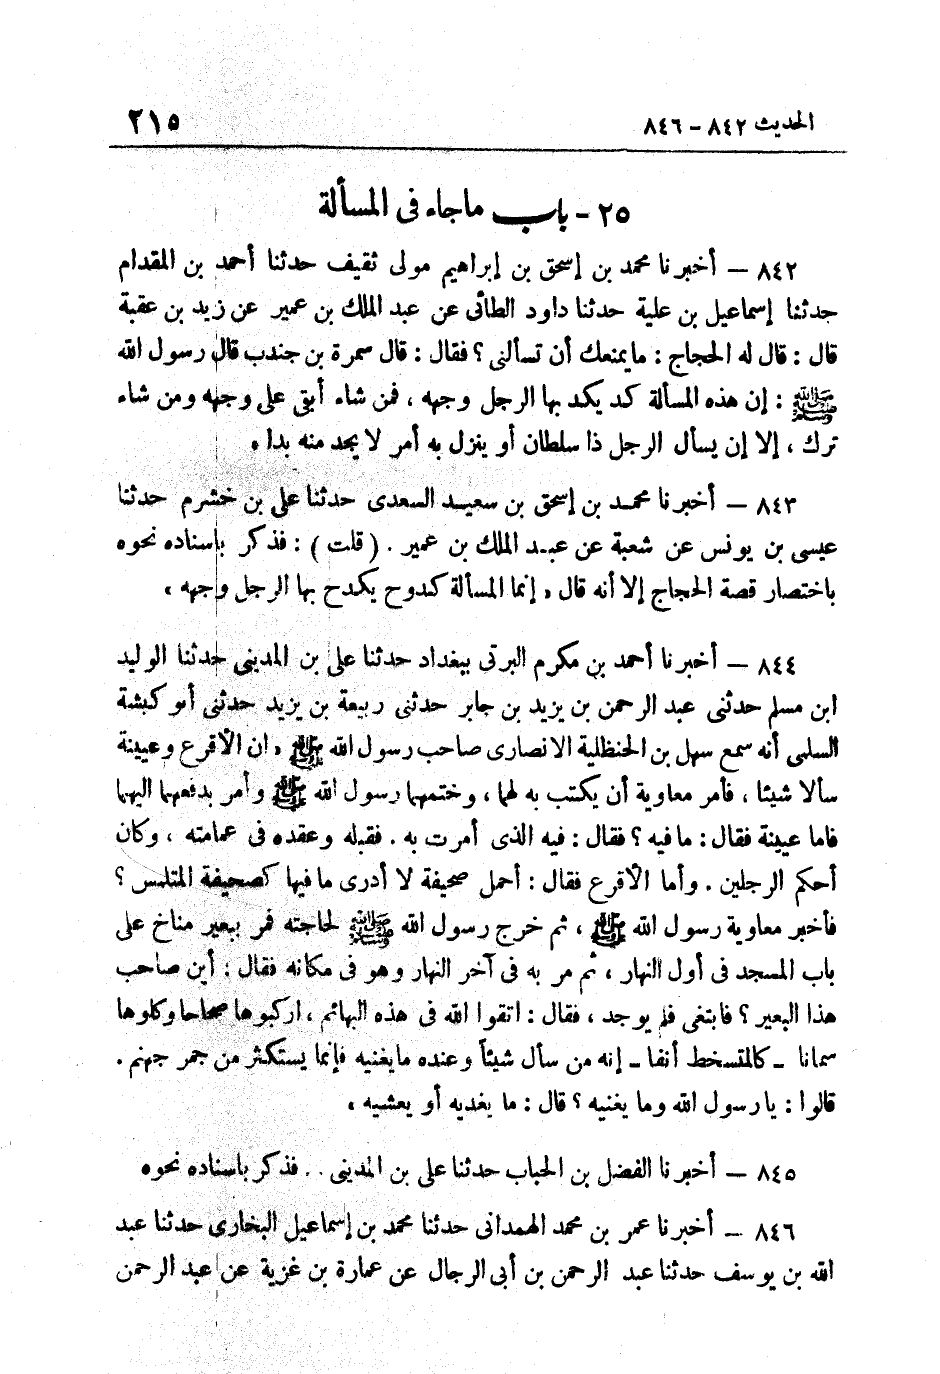 الحديث ٨٤٢ – ٨٤٦ ٢١٥
٢٥ – باب ماجاء فى المسألة
٨٤٢ – أخبرنا محمد بن إسحق بن إبراهيم مولى ثقيف حدثنا أحمد بن المقدام
حدثنا إسماعيل بن علية حدثنا داود الطائى عن عبد الملك بن عمير عن زيد بن عقبة
قال : قال له الحجاج : مايمنعك أن تسألنى ؟ فقال : قال سمرة بن جندب قال رسول الله
ﷺ : إن هذه المسألة كد يكد بها الرجل وجهه ، فمن شاء أبقى على وجهه ومن شاء
ترك ، إلا إن يسأل الرجل ذا سلطان أو ينزل به أمر لا يجد منه بدا .
٨٤٣ – أخبرنا محمد بن إسحق بن سعيد السعدى حدثنا على بن خشرم حدثنا
عيسى بن يونس عن شعبة عن عبد الملك بن عمير . ( قلت ) : فذكر باسناده نحوه
باختصار قصة الحجاج إلا أنه قال « إنما المسألة كدوح يكدح بها الرجل وجهه »
٨٤٤ – أخبرنا أحمد بن مكرم البرتى ببغداد حدثنا على بن المدينى حدثنا الوليد
ابن مسلم حدثنى عبد الرحمن بن يزيد بن جابر حدثنى ربيعة بن يزيد حدثنى أبو كبشة
السلمى أنه سمع سهل بن الحنظلية الانصارى صاحب رسول الله ﷺ « ان الأقرع وعيينة
سألا شيئا ، فأمر معاوية أن يكتب به لهما ، وختمهما رسول الله ﷺ وأمر بدفعهما اليهما
فاما عيينة فقال : ما فيه ؟ فقال : فيه الذى أمرت به . فقبله وعقده فى عمامته ، وكان
أحكم الرجلين . وأما الأقرع فقال : أحمل صحيفة لا أدرى مافيها كصحيفة المتلمس ؟
فأخبر معاوية رسول الله ﷺ ، ثم خرج رسول الله ﷺ لحاجته فمر ببعير مناخ على
باب المسجد فى أول النهار ، ثم مر به فى آخر النهار وهو فى مكانه فقال : أين صاحب
هذا البعير ؟ فابتغى فلم يوجد ، فقال : اتقوا الله فى هذه البهائم ، اركبوها صحاحا وكلوها
سمانا ـ كالمتسخط أنفا ـ إنه من سأل شيئاً وعنده مايغنيه فإنما يستكثر من جمر جهنم .
قالوا : يا رسول الله وما يغنيه ؟ قال : ما يغديه أو يعشيه »
٨٤٥ – أخبرنا الفضل بن الحباب حدثنا على بن المدينى . . فذكر باسناده نحوه
٨٤٦ – أخبرنا عمر بن محمد الهمدانى حدثنا محمد بن إسماعيل البخارى حدثنا عبد
الله بن يوسف حدثنا عبد الرحمن بن أبى الرجال عن عمارة بن غزية عن عبد الرحمن